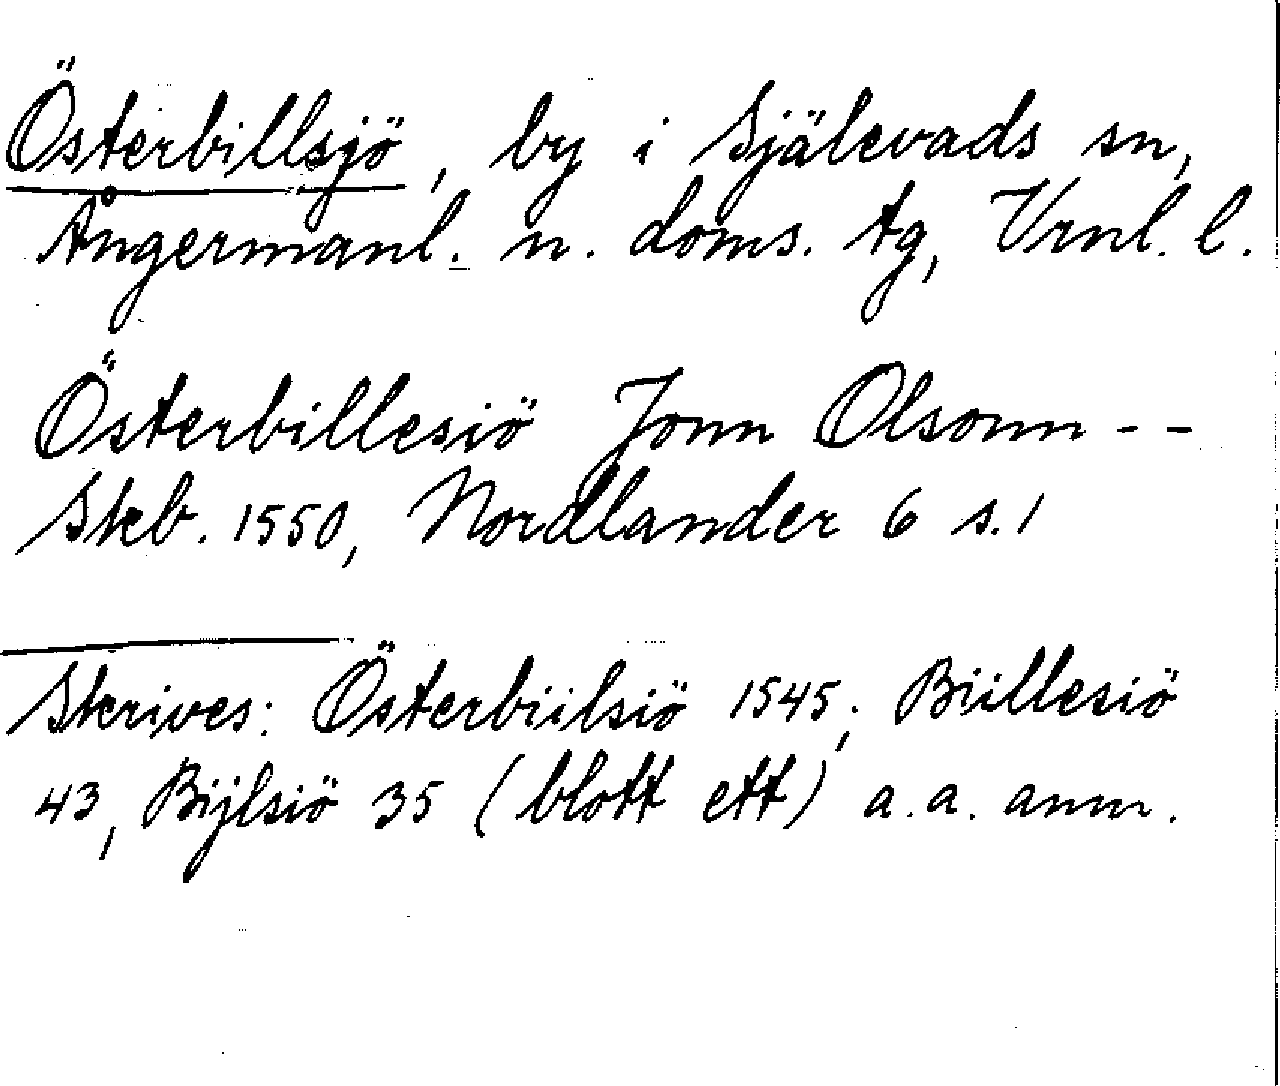 Österbillsjö, by i Själevads sn,
Ångermanl. n. doms. tg, Vrnl. l.
Österbillesiö Jonn Olsonn - -
Skb. 1550, Nordlander 6 s. 1
Skrives: Österbiilsiö 1545; Biillesiö
43, Bijlsiö 35 (blott ett) a.a. anm.